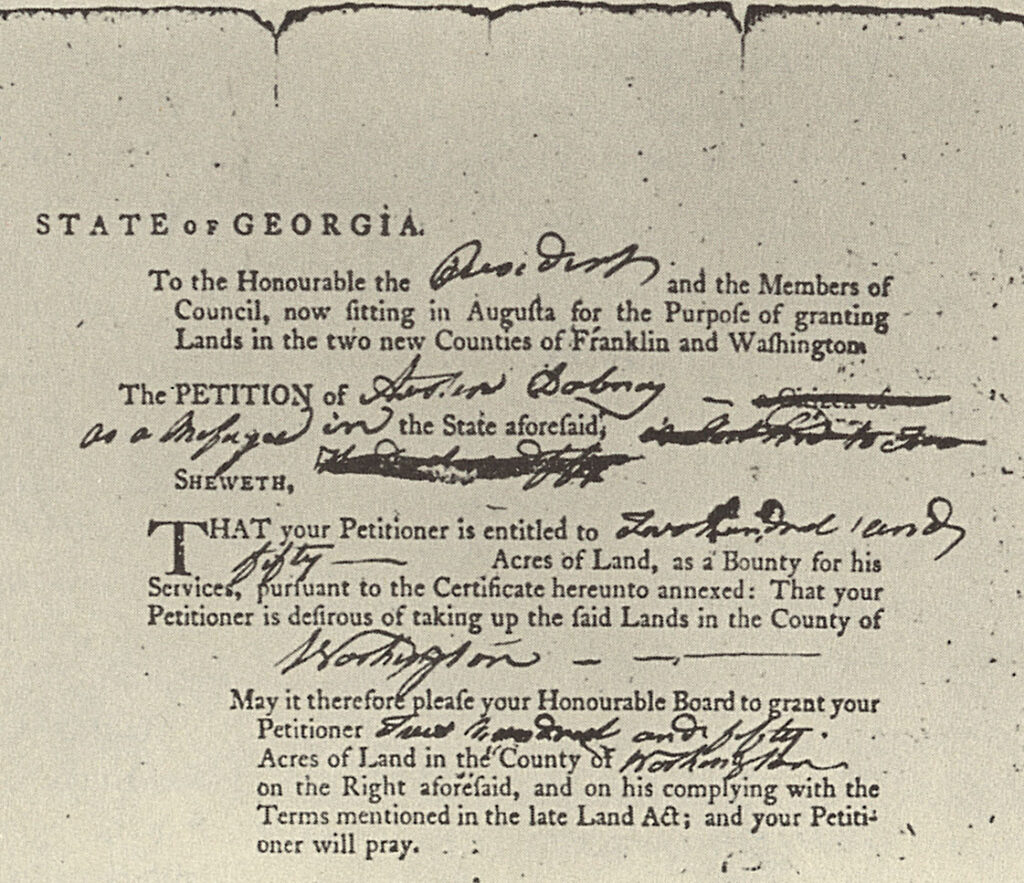 STATE OF GEORGIA.
To the Honourable the President and the Members of
Council, now ſitting in Auguſta for the Purpoſe of granting
Lands in the two new Counties of Franklin and Waſhington
The PETITION of Auſtin Dabney — a Citizen of
as a Refugee in the State aforeſaid,
SHEWETH,
THAT your Petitioner is entitled to Two Hundred and
fifty — Acres of Land, as a Bounty for his
Services, purſuant to the Certificate hereunto annexed: That your
Petitioner is deſirous of taking up the ſaid Lands in the County of
Washington — — —
May it therefore pleaſe your Honourable Board to grant your
Petitioner Two hundred and fifty.
Acres of Land in the County of Washington
on the Right aforeſaid, and on his complying with the
Terms mentioned in the late Land Act; and your Petiti-
oner will pray.